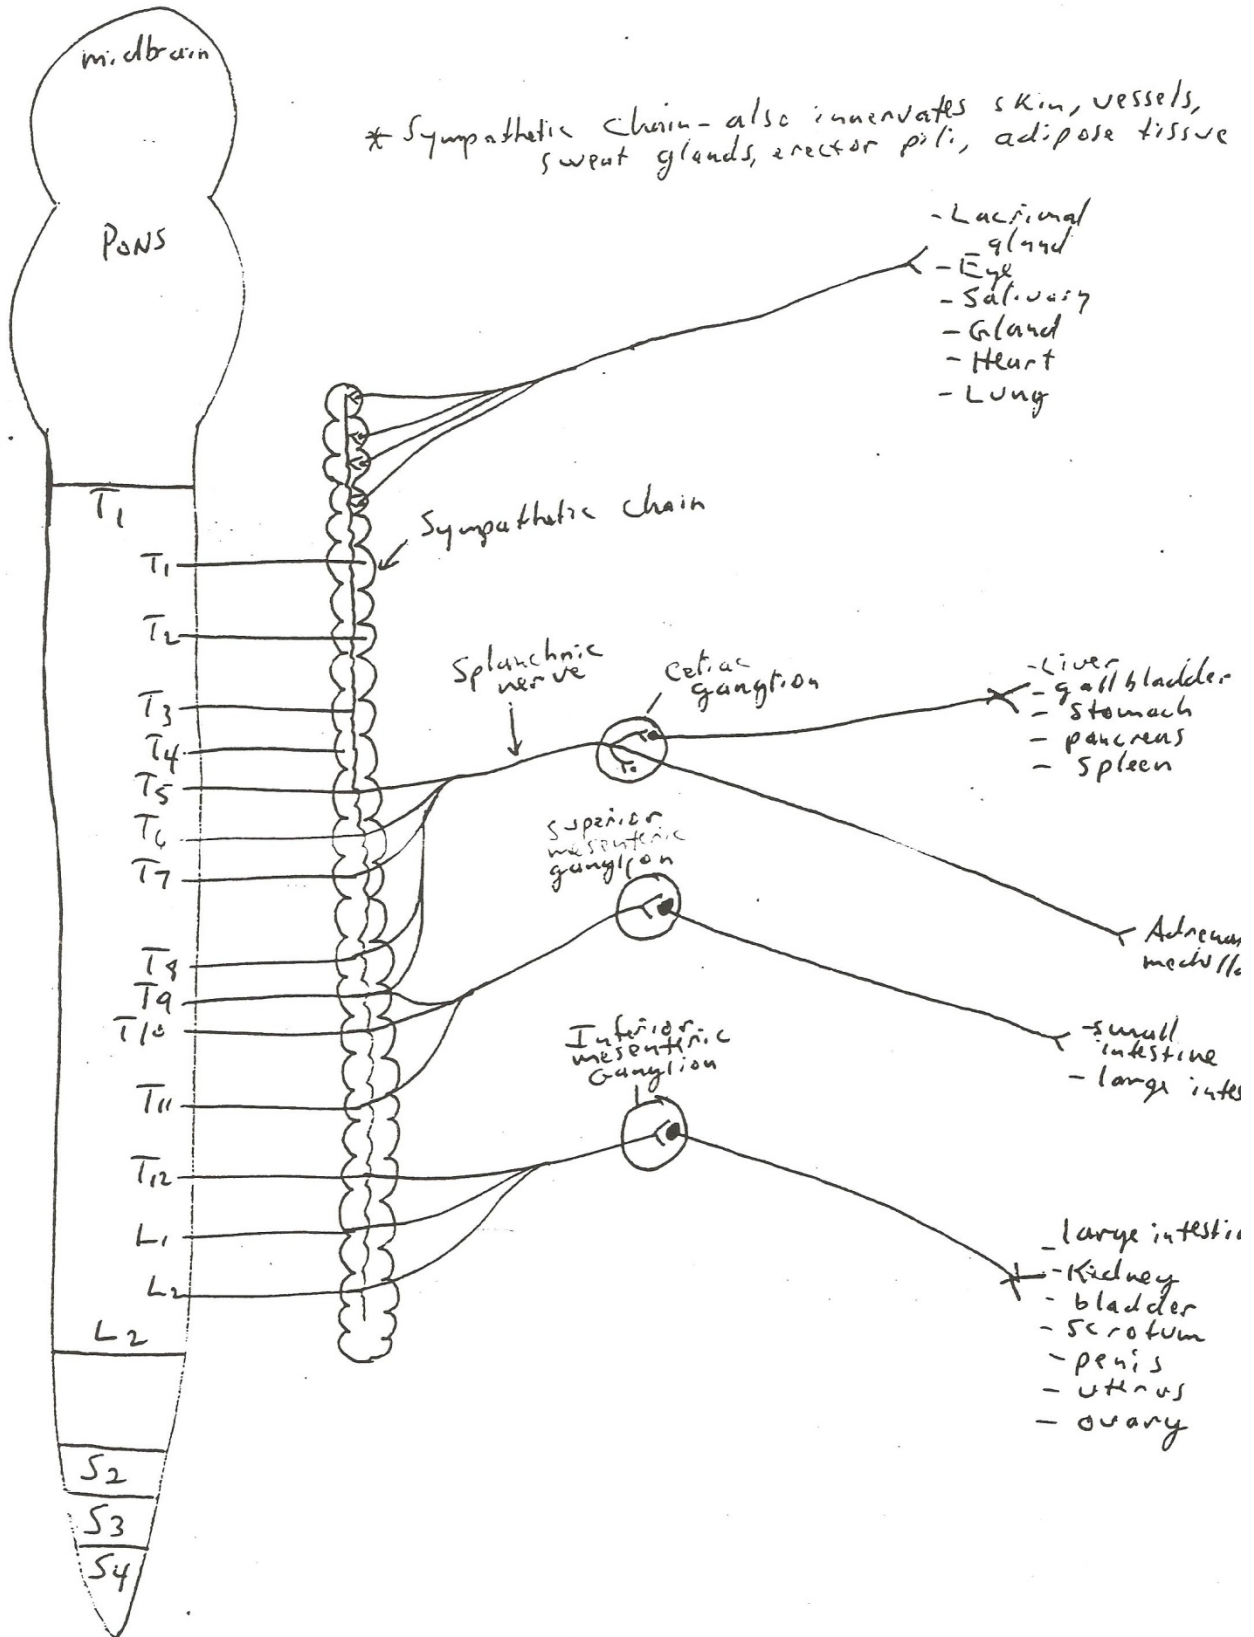 midbrain
* Sympathetic Chain - also innervates skin, vessels,
sweat glands, erector pili, adipose tissue
PONS
- Lacrimal
gland
- Eye
- Salivary
- Gland
- Heart
- Lung
T1
Sympathetic Chain
T1
T2
T3
T4
T5
T6
T7
T8
T9
T10
T11
T12
L1
L2
L2
S2
S3
S4
Splanchnic
nerve
Celiac
ganglion
- Liver
- gallbladder
- Stomach
- pancreas
- Spleen
Superior
mesenteric
ganglion
Adrenal
medulla
- small
intestine
- large intes
Inferior
mesenteric
Ganglion
- large intestin
- Kidney
- bladder
- scrotum
- penis
- uterus
- ovary